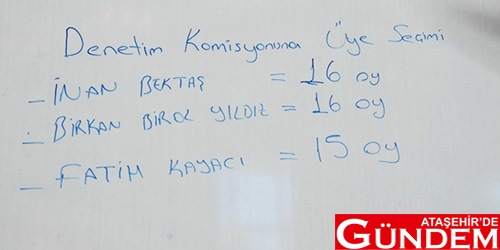 Denetim Komisyonuna Üye Seçimi
- İNAN BEKTAŞ = 16 oy
- BİRKAN BİROL YILDIZ = 16 oy
- FATİH KAYACI = 15 oy
ATAŞEHİR'DE
GÜNDEM